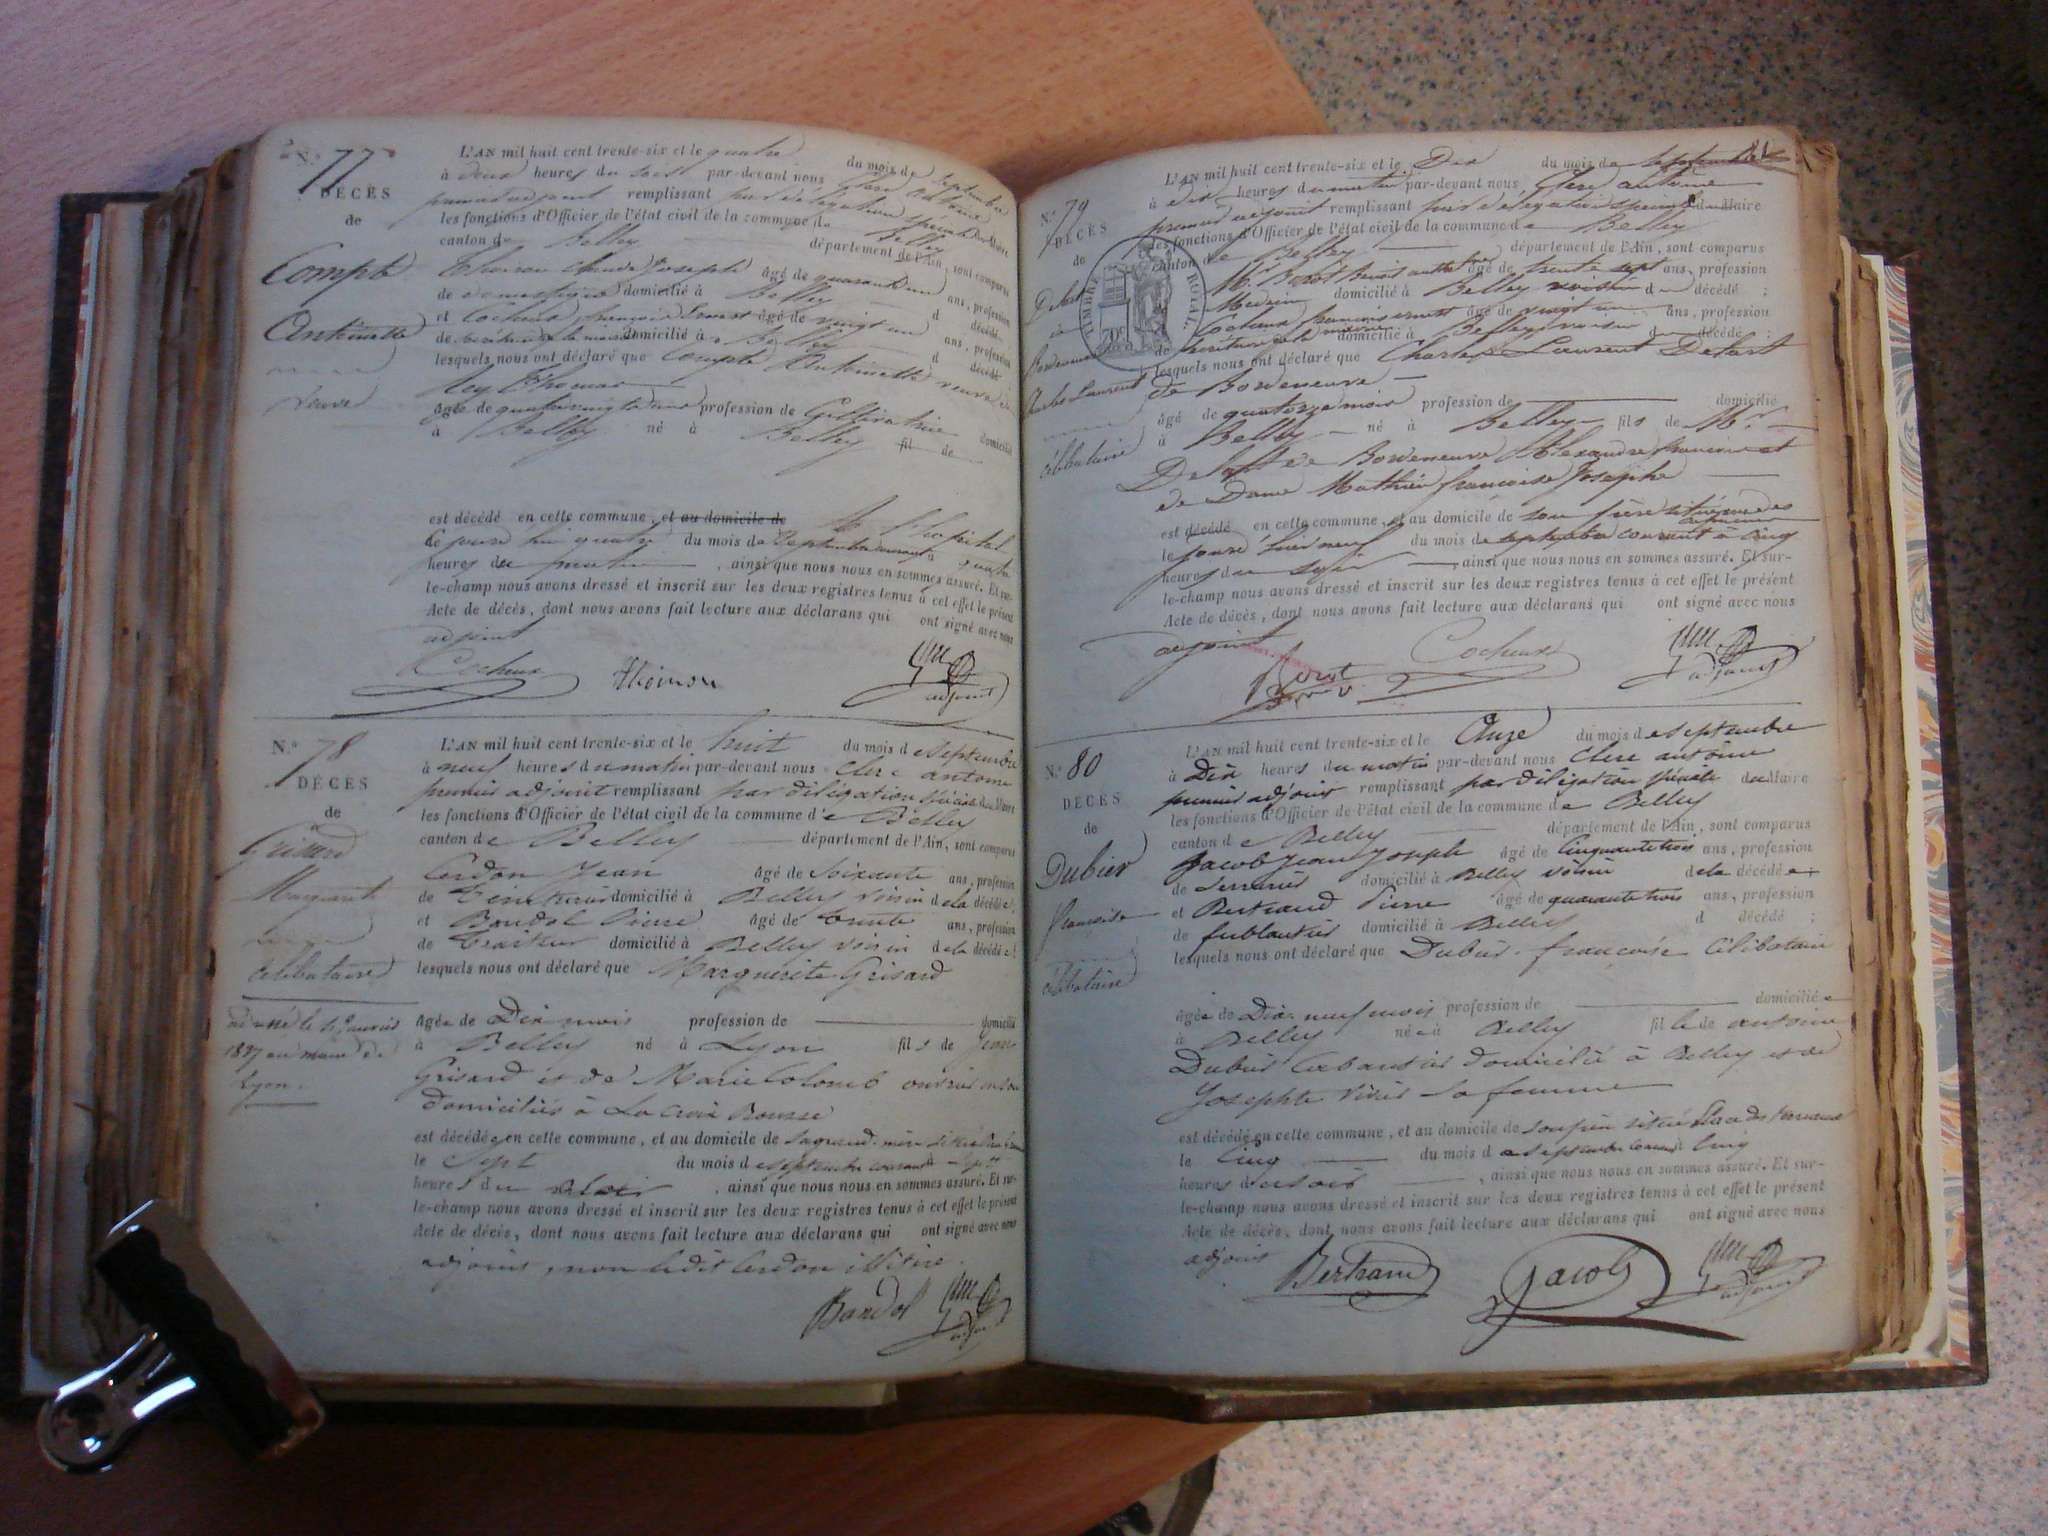 N.º 77
DÉCÈS
de
Compte
Antoinette
veuve
L'AN mil huit cent trente-six et le quatre du mois de septembre
à deux heures du soir par-devant nous Clerc Antoine
premier adjoint remplissant par délégation spéciale du Maire
les fonctions d'Officier de l'état civil de la commune de Belley
canton de Belley département de l'Ain, sont comparus
Claude Joseph âgé de quarante un ans, profession
de domestique domicilié à Belley d décédé
et Cocheux françois Ernest âgé de vingt un ans, profession
de domicilié à Belley d décédé
lesquels nous ont déclaré que Compte Antoinette veuve de
Rey Thomas
âgée de quatre vingts ans profession de domicilié
à Belley né à Belley fil de
est décédé en cette commune, et au domicile de à l'hopital
le jourd'hui quatre du mois de septembre courant à quatre
heures du matin, ainsi que nous nous en sommes assuré. Et sur-
le-champ nous avons dressé et inscrit sur les deux registres tenus à cet effet le présent
Acte de décès, dont nous avons fait lecture aux déclarans qui ont signé avec nous
adjoint
Cocheux
adjoint
N.º 78
DÉCÈS
de
Grisard
Marguerite
célibataire
1837 au maire de
Lyon.
L'AN mil huit cent trente-six et le huit du mois de septembre
à neuf heures du matin par-devant nous Clerc antoine
premier adjoint remplissant par déligation spéciale du Maire
les fonctions d'Officier de l'état civil de la commune de Belley
canton de Belley département de l'Ain, sont comparus
Cerdon Jean âgé de soixante ans, profession
de domicilié à Belley voisin de la décédée;
et Bandol Pierre âgé de trente ans, profession
de traiteur domicilié à Belley voisin de la décédée:
lesquels nous ont déclaré que Marguerite Grisard
âgée de Dix mois profession de domicilié
à Belley né à Lyon fils de Jean
Grisard et de Marie Colomb ouvriers en soie
domiciliés à La croix Rousse
est décédée en cette commune, et au domicile de sa grand-mère
le sept du mois de septembre courant
heures du soir, ainsi que nous nous en sommes assuré. Et sur-
le-champ nous avons dressé et inscrit sur les deux registres tenus à cet effet le présent
Acte de décès, dont nous avons fait lecture aux déclarans qui ont signé avec nous
adjoint, non ledit Cerdon illitiré.
Bandol
adjoint
N.º 79
DÉCÈS
de
Charles Laurent
célibataire
TIMBRE ROYAL
70c
L'AN mil huit cent trente-six et le Dix du mois de septembre
à dix heures du matin par-devant nous Clerc antoine
premier adjoint remplissant par délégation spéciale du Maire
les fonctions d'Officier de l'état civil de la commune de Belley
canton de Belley département de l'Ain, sont comparus
Mr. âgé de trente sept ans, profession
Medecin domicilié à Belley voisin d décédé;
Cocheux françois ernest âgé de vingt un ans, profession
de domicilié à Belley voisin d décédé:
lesquels nous ont déclaré que Charles Laurent Delart
de Bordeneuve
âgé de quatorze mois profession de domicilié
à Belley né à Belley fils de Mr.
de Bordeneuve Alexandre et
de Dame Mathieu françoise Josephe
est décédé en cette commune, et au domicile de son père
le jourd'hier neuf du mois de septembre courant à cinq
heures du soir, ainsi que nous nous en sommes assuré. Et sur-
le-champ nous avons dressé et inscrit sur les deux registres tenus à cet effet le présent
Acte de décès, dont nous avons fait lecture aux déclarans qui ont signé avec nous
adjoint
Cocheux
adjoint
N.º 80
DÉCÈS
de
Dubier
françoise
célibataire
L'AN mil huit cent trente-six et le Onze du mois de septembre
à Dix heures du matin par-devant nous Clerc antoine
premier adjoint remplissant par déligation spéciale du Maire
les fonctions d'Officier de l'état civil de la commune de Belley
canton de Belley département de l'Ain, sont comparus
Jacob Jean Joseph âgé de cinquante trois ans, profession
de serrurier domicilié à Belley voisin de la décédée;
et Bertrand Pierre âgé de quarante trois ans, profession
de ferblantier domicilié à Belley d décédé;
lesquels nous ont déclaré que Dubier françoise célibataire
âgée de Dix-neuf mois profession de domiciliée
à Belley née à Belley fille de antoine
Dubier domicilié à Belley et de
Josephte sa femme
est décédée en cette commune, et au domicile de son père situé Place des
le cinq du mois de septembre courant cinq
heures du soir, ainsi que nous nous en sommes assuré. Et sur-
le-champ nous avons dressé et inscrit sur les deux registres tenus à cet effet le présent
Acte de décès, dont nous avons fait lecture aux déclarans qui ont signé avec nous
adjoint
Bertrand
Jacob
adjoint